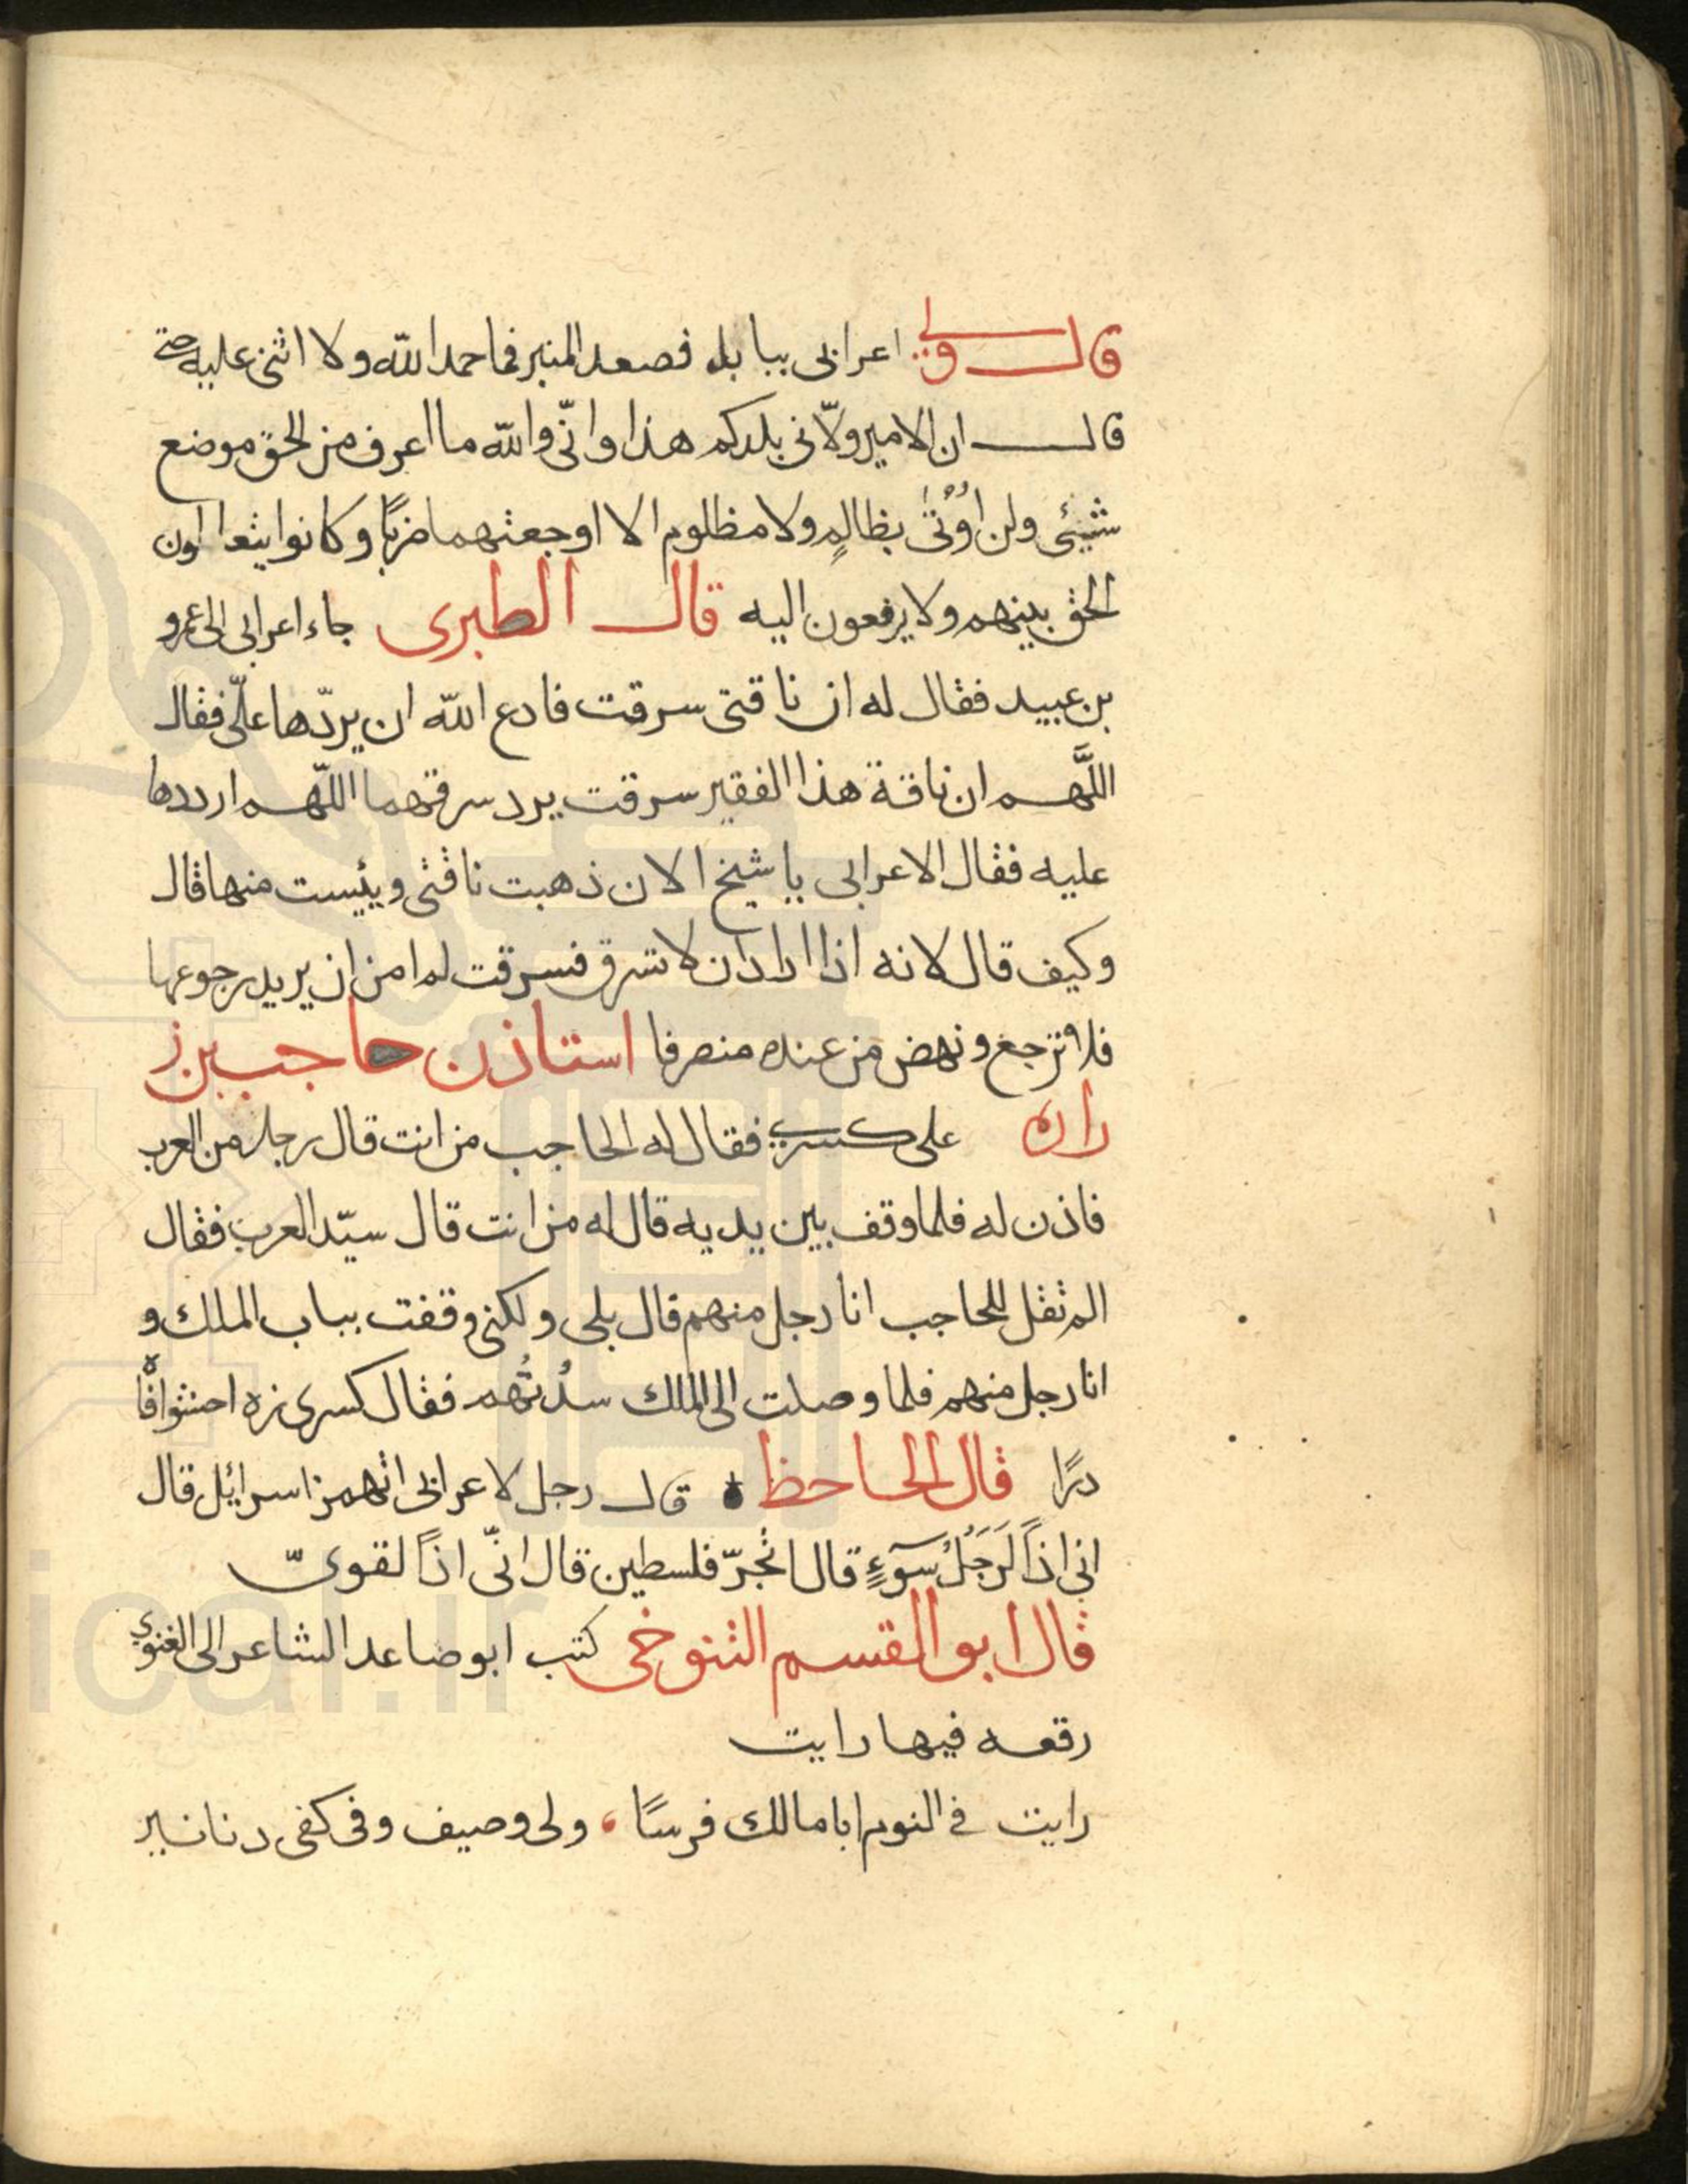 قال ولي اعرابى ببابل فصعد المنبر فما حمد الله ولا اثنى عليه حتى
قال ان الامير ولّانى بلدكم هذا وانّى والله ما اعرف من الحق موضع
شيئى ولن اُوُتىٰ بظالمٍ ولا مظلوم الا اوجعتهما ضربًا وكانوا يتعاون
الحق بينهم ولا يرفعون اليه قال الطبرى جاء اعرابى الى عمرو
بن عبيد فقال له ان ناقتى سرقت فادع الله ان يردّها علىّ فقال
اللَّهم ان ناقة هذا الفقير سرقت يرد سرقتهما اللّهم ارددها
عليه فقال الاعرابى يا شيخ الان ذهبت ناقتى ويئست منها قال
وكيف قال لانه اذا اراد ان لا تسرق فسرقت لم امن ان يريد رجوعها
فلا ترجع ونهض من عنده منصرفا استاذن حاجب بن ز
راره على كسرى فقال له الحاجب من انت قال رجل من العرب
فاذن له فلما وقف بين يديه قال له من انت قال سيّد العرب فقال
الم تقل للحاجب انا رجل منهم قال بلى ولكنى وقفت بباب الملك و
انا رجل منهم فلما وصلت الى الملك سدُتُهم فقال كسرى زه احشوا فاه
درًا قال الجاحظ قال رجل لاعرابى اتهمز اسرائل قال
انى اذًا لَرَجُلُ سَوءٍ قال اتجرّ فلسطين قال انّى اذًا لقوىّ
قال ابو القسم التنوخى كتب ابو صاعد الشاعر الى الغنوى
رقعه فيها رايت
رايت فى النوم ابا مالك فرسًا ، ولى وصيف وفى كفى دنانير